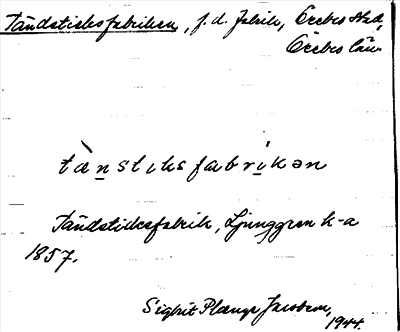 Tändsticksfabriken, f.d. fabrik, Örebro stad,
Örebro län
tænstiksfabrikən
Tändsticksfabrik, Ljunggren k-a
1857.
Sigbrit Plænge Jacobson,
1944.